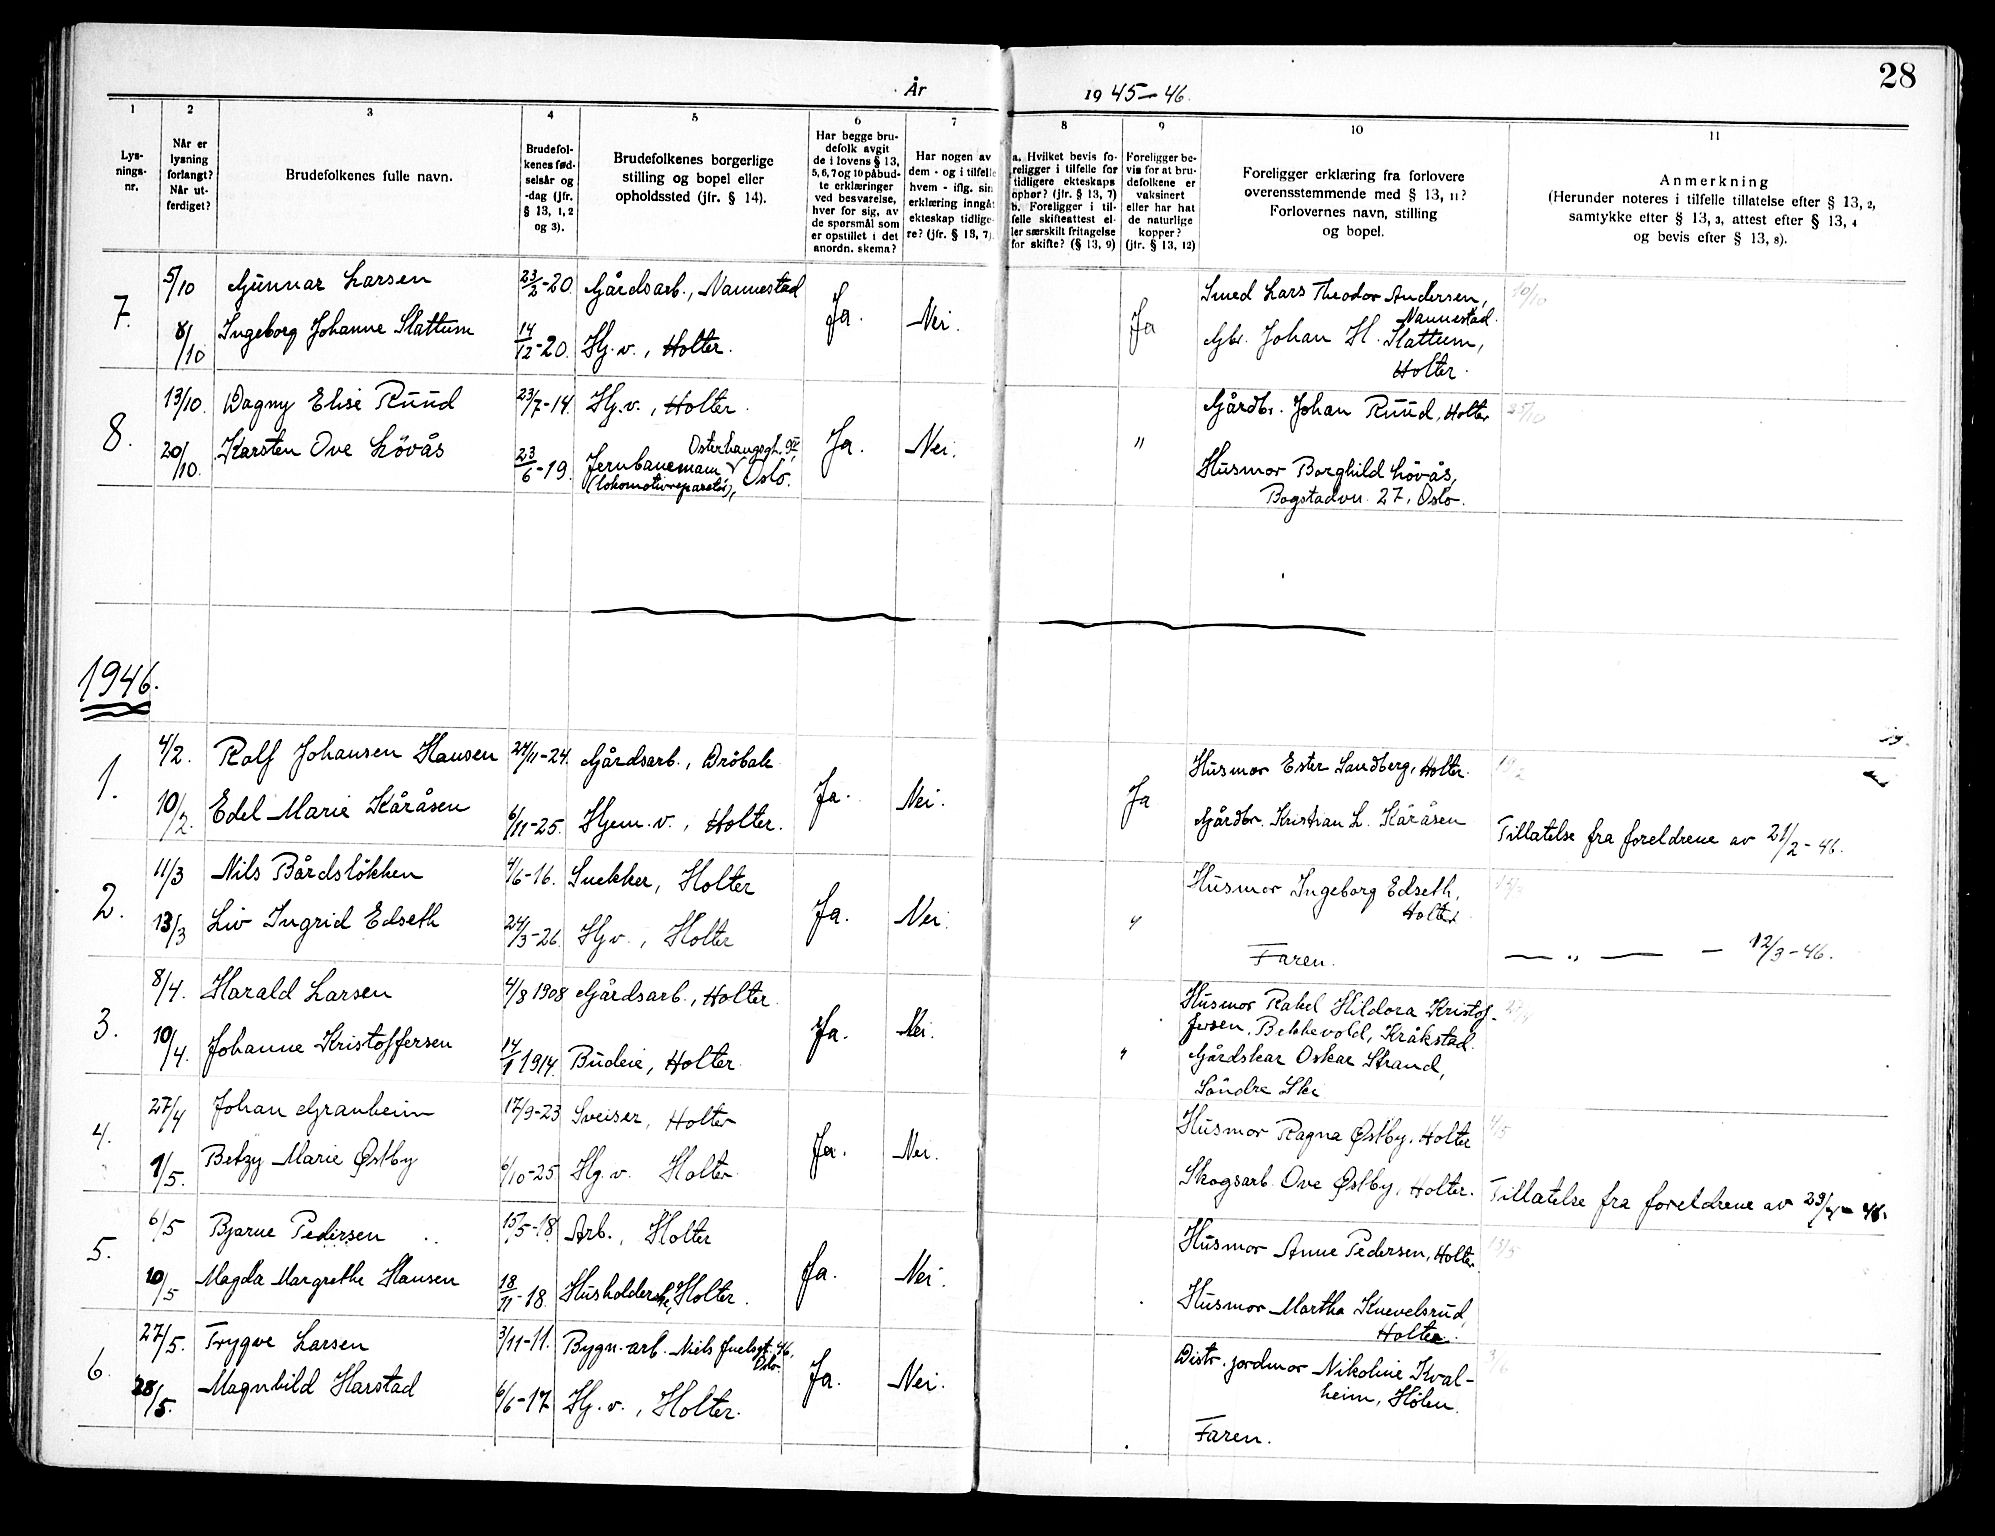 28
År 1945-46.
1 2 3 4 5 6 7 8 9 10 11
Lys-
nings-
nr.
Når er
lysning
forlangt?
Når ut-
ferdiget?
Brudefolkenes fulle navn.
Brudefol-
kenes fød-
selsår og
-dag (jfr.
§ 13, 1, 2
og 3).
Brudefolkenes borgerlige
stilling og bopel eller
opholdssted (jfr. § 14).
Har begge bru-
defolk avgit
de i lovens § 13,
5, 6, 7 og 10 påbud-
te erklæringer
ved besvarelse,
hver for sig, av
de spørsmål som
er opstillet i det
anordn. skema?
Har nogen av
dem - og i tilfelle
hvem - iflg. sin
erklæring inngåt
ekteskap tidlige-
re? (jfr. § 13, 7)
a. Hvilket bevis fo-
religger i tilfelle for
tidligere ekteskaps
ophør? (jfr. § 13, 7)
b. Foreligger i til-
felle skifteattest el-
ler særskilt fritagelse
for skifte? (§ 13, 9)
Foreligger be-
vis for at bru-
defolkene er
vaksinert
eller har hat
de naturlige
kopper?
(jfr. § 13, 12)
Foreligger erklæring fra forlovere
overensstemmende med § 13, 11?
Forlovernes navn, stilling
og bopel.
Anmerkning
(Herunder noteres i tilfelle tillatelse efter § 13, 2,
samtykke efter § 13, 3, attest efter § 13, 4
og bevis efter § 13, 8).
7. 5/10 Gunnar Larsen 23/2-20 Gårdsarb., Nannestad Ja. Nei. Ja Smed Lars Theodor Andersen, 10/10
Nannestad.
8/10 Ingeborg Johanne Slattum 14/12-20. Hj.v., Holter. Gbr. Johan H. Slattum,
Holter.
8. 13/10. Dagny Elise Ruud 23/7-14. Hj.v., Holter. Ja. Nei. " Gårdbr. Johan Ruud, Holter 25/10
20/10. Karsten Ove Lövås 23/6-19. Jernbanemann
(lokomotivreparatör), Oslo.
Husmor Borghild Lövås,
Bogstadvn. 27, Oslo.
1946.
1. 4/2. Rolf Johansen Hansen 24/11-24. Gårdsarb., Dröbak Ja. Nei. Ja Husmor Ester Sandberg, Holter.
10/2. Edel Marie Kåråsen 6/11-25. Hjem.v., Holter. Gårdbr. Kristian L. Kåråsen Tillatelse fra foreldrene av 21/2-46.
2. 11/3 Nils Bårdslökken 4/6-16. Snekker, Holter Ja. Nei. " Husmor Ingeborg Edseth,
Holter
13/3 Liv Ingrid Edseth 24/3-26. Hjv., Holter Faren. — " — — 12/3-46.
3. 8/4. Harald Larsen 4/8 1908 Gårdsarb., Holter. Ja. Nei. " Husmor Rakel Hildora Kristof-
fersen, Bekkevold, Kråkstad.
10/4. Johanne Kristoffersen 1914. Budeie, Holter. Gårdskar Oskar Strand,
Söndre Ski
4. 27/4 Johan Granheim 17/9-23 Sveiser, Holter Ja. Nei. Husmor Ragna Østby, Holter 4/5
1/5. Betzy Marie Østby 6/10-25 Hj.v. Holter. Skogsarb. Ove Østby, Holter. Tillatelse fra foreldrene av 29/4-46.
5. 6/5 Bjarne Pedersen 15/5-18. Arb., Holter Ja. Nei. Husmor Anne Pedersen, Holter
10/5 Magda Margrethe Hansen 18/11-18. Husholderske, Holter. Husmor Martha Knevelsrud,
Holter.
6. 27/5. Trygve Larsen 3/11-11. Bygn.arb. Niels Juelsgt. 46, Oslo. Ja. Nei. Distr. jordmor Nikoline Kval-
heim, Hölen.
28/5. Magnhild Harstad 6/6-17 Hj.v., Holter. Faren.